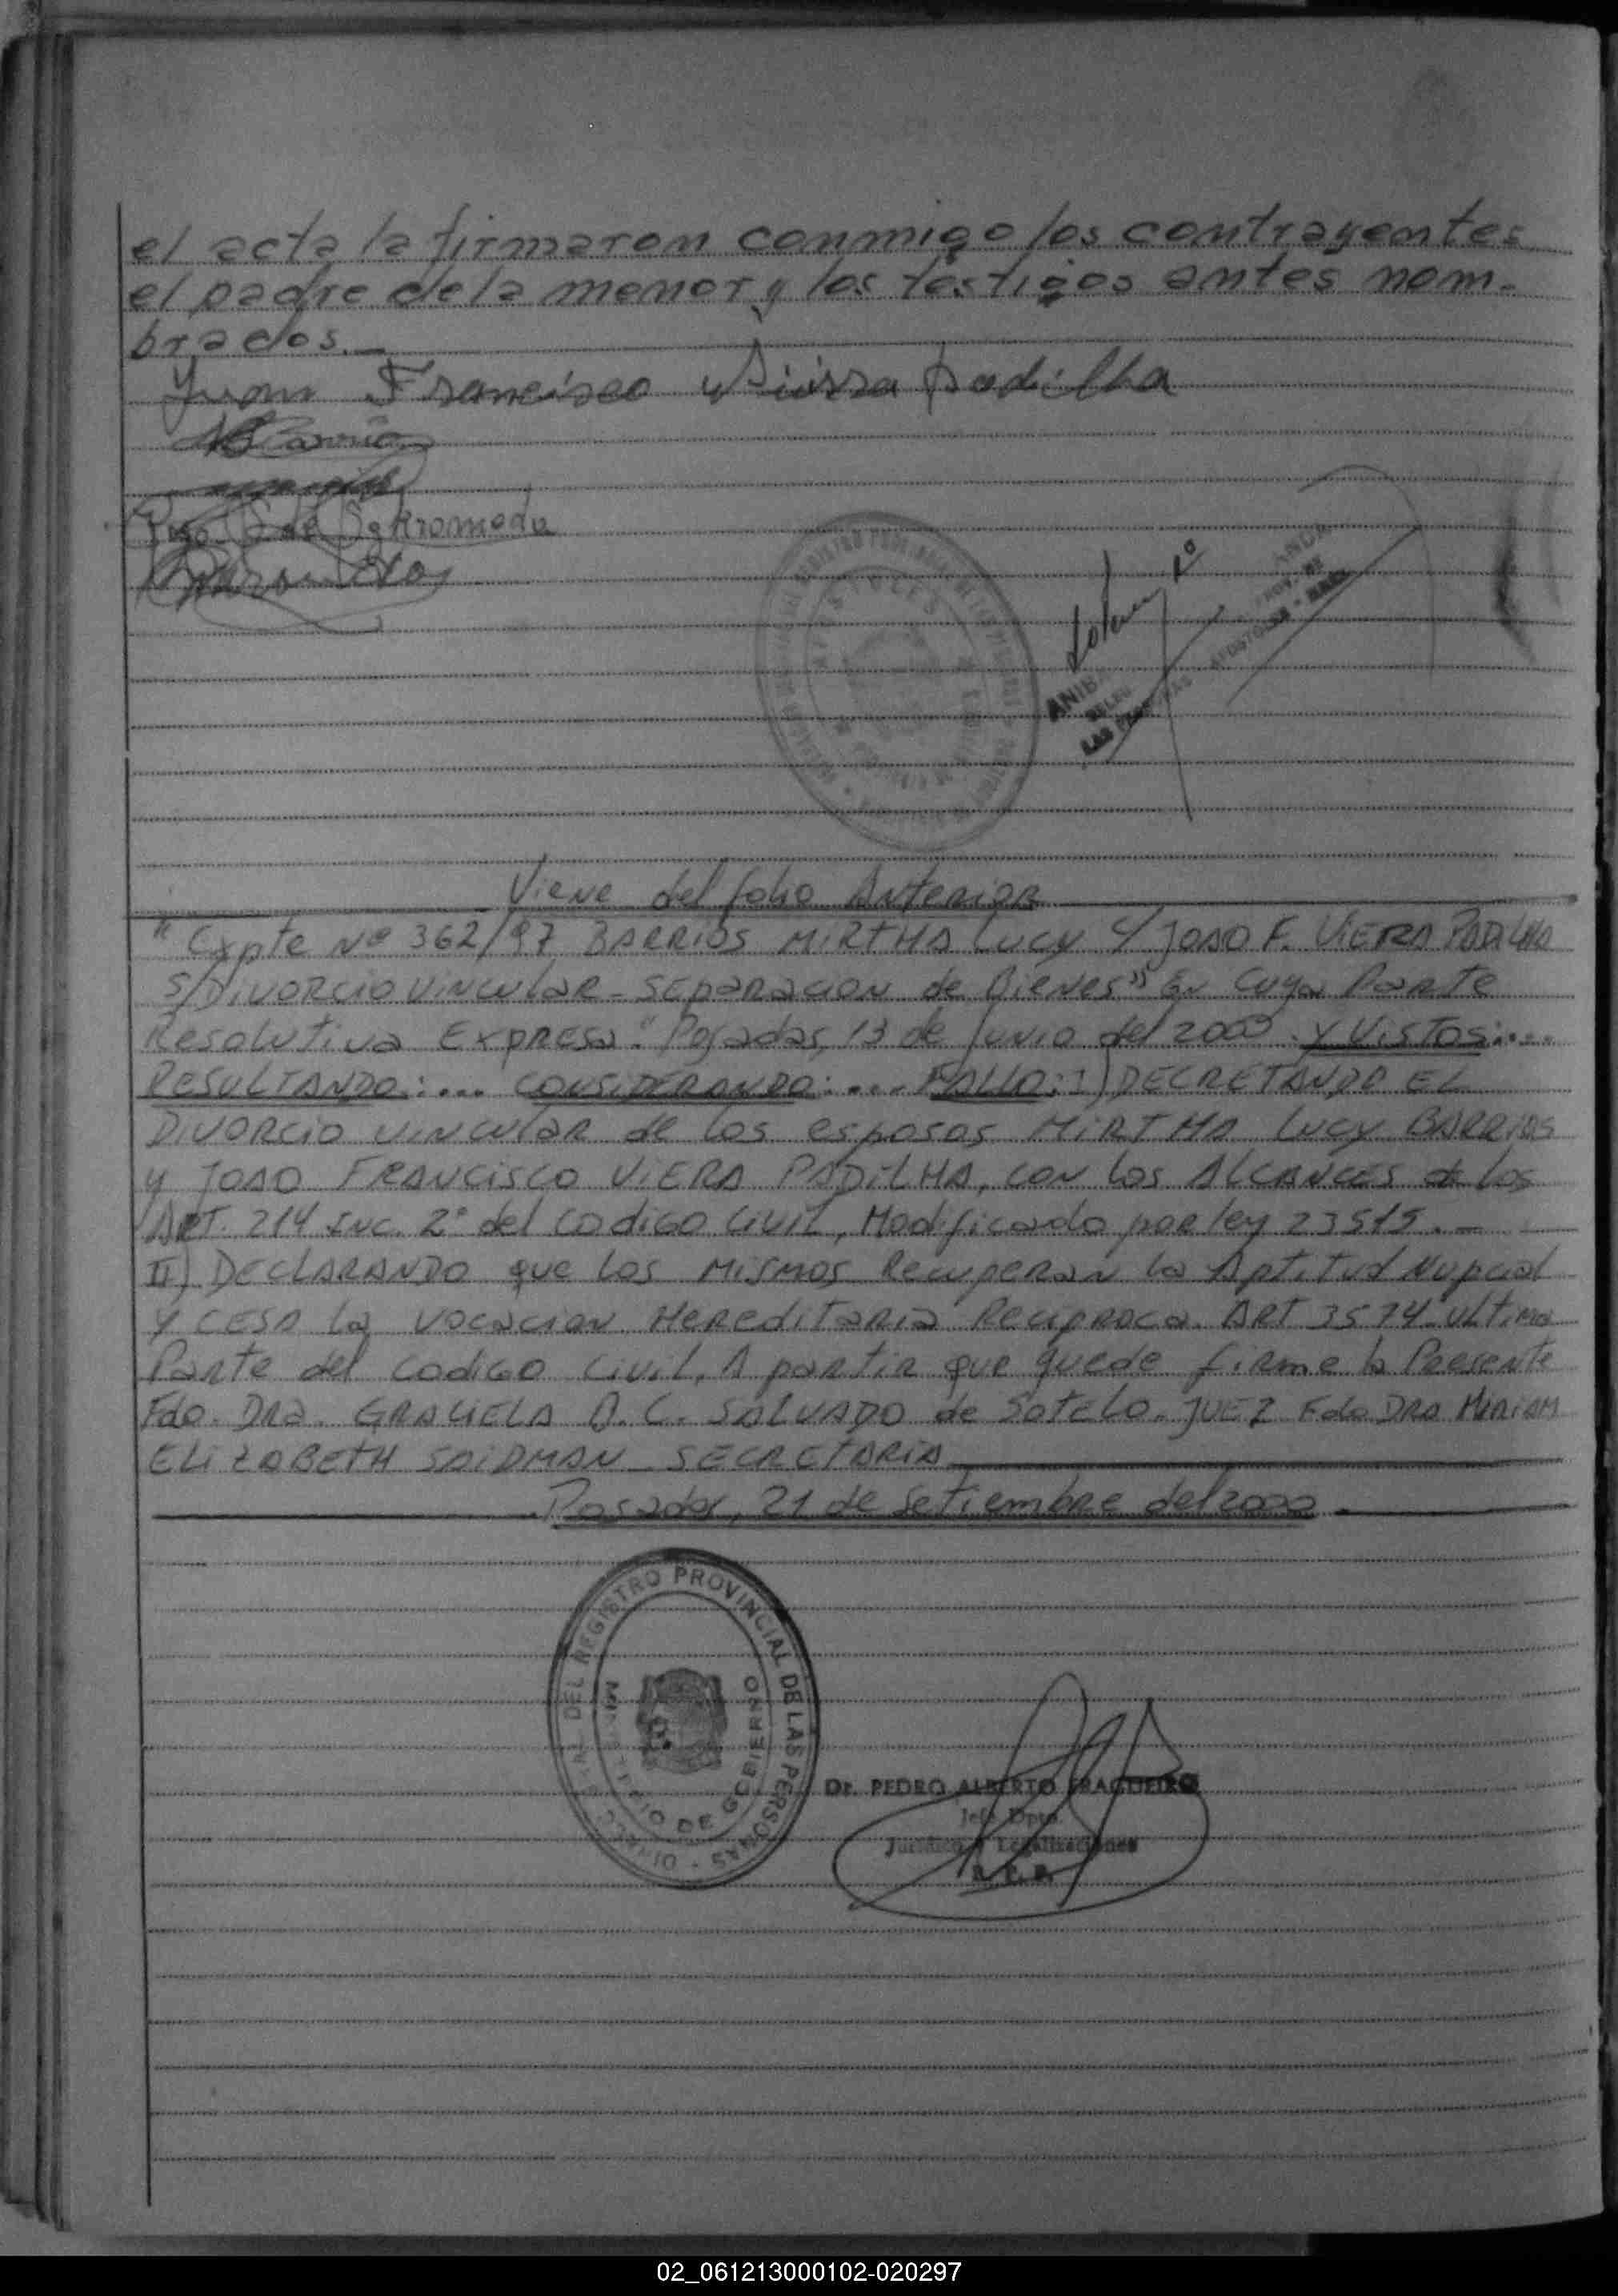 el acta la firmaron conmigo los contrayentes
el padre de la menor y los testigos antes nom-
brados.-
Francisco Padilha
Viene del folio Anterior
"Expte Nº 362/97 BARRIOS MIRTHA LUCY C/ JOAO F. VIERA PADILHA
S/DIVORCIO VINCULAR - SEPARACION de Bienes" En Cuya Parte
Resolutiva Expresa: "Posadas, 13 de Junio del 2000. Y VISTOS:...
RESULTANDO:... CONSIDERANDO:... FALLO: I) DECRETANDO EL
DIVORCIO VINCULAR de los esposos MIRTHA LUCY BARRIOS
y JOAO FRANCISCO VIERA PADILHA, CON los ALCANCES de los
ART. 214 INC. 2° del CODIGO CIVIL, Modificado por ley 23515.-
II) DECLARANDO que los MISMOS Recuperan la Aptitud Nupcial
y CESA la VOCACION HEREDITARIA Reciproca. ART 3574 ULTIMA
Parte del CODIGO CIVIL, A partir que quede firme la Presente
Fdo. DRA. GRACIELA SALVADO de SOTELO. JUEZ Fdo DRA MIRIAM
ELIZABETH SAIDMAN SECRETARIA
Posadas, 21 de Setiembre del 2000.
DEL REGISTRO PROVINCIAL DE LAS PERSONAS
MINISTERIO DE GOBIERNO
Dr. PEDRO ALBERTO FRAGUEIRO
Jefe Dpto.
Jurídico y Legalizaciones
R. P. P.
02_061213000102-020297